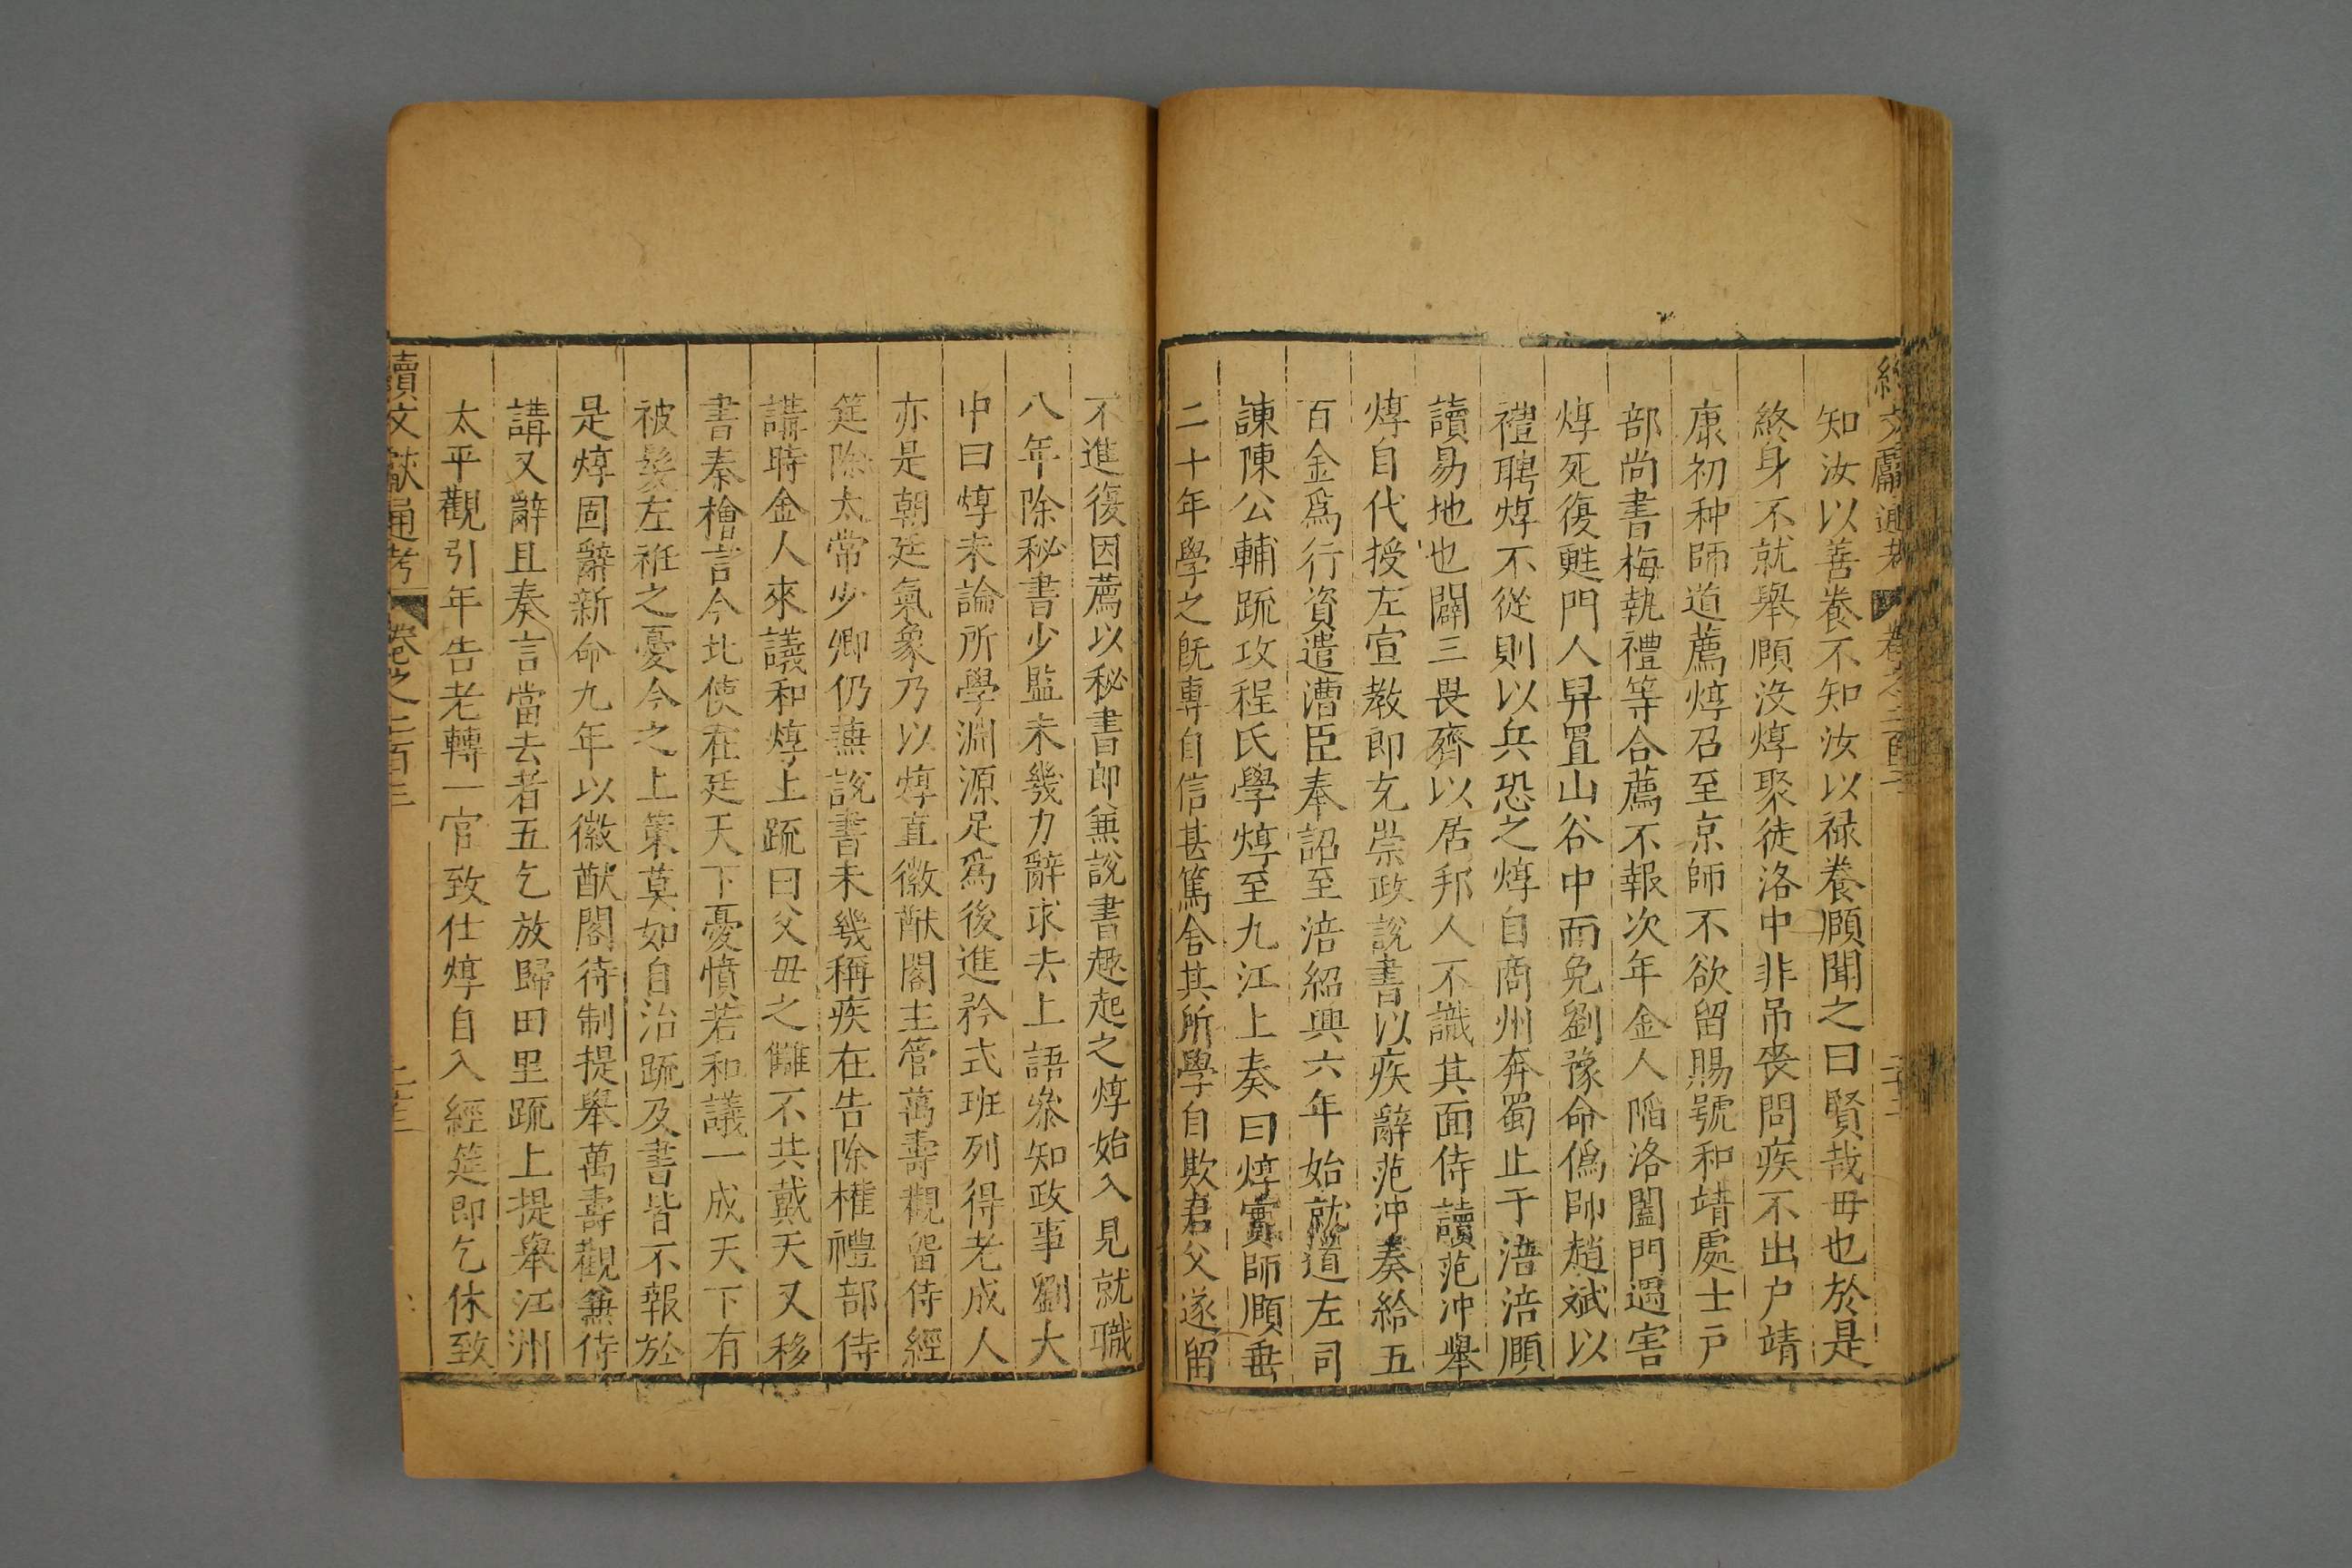 續文獻通考 卷之二百三
知汝以善養不知汝以祿養頥聞之曰賢哉毋也於是
終身不就舉頥沒焞聚徒洛中非吊喪問疾不出户靖
康初种師道薦焞召至京師不欲留賜號和靖處士戸
部尚書梅執禮等合薦不報次年金人陷洛闔門遇害
焞死復甦門人舁置山谷中而免劉豫命僞帥趙斌以
禮聘焞不從則以兵恐之焞自商州奔蜀止于涪涪頥
讀易地也闢三畏齋以居邦人不識其面侍讀范冲舉
焞自代授左宣教郎充崇政說書以疾辭范冲奏給五
百金爲行資遣漕臣奉詔至涪紹興六年始就道左司
諫陳公輔䟽攻程氏學焞至九江上奏曰焞實師頥垂
二十年學之旣專自信甚篤舍其所學自欺君父遂留
不進復因薦以秘書郎兼說書趣起之焞始入見就職
八年除秘書少監未幾力辭求去上語叅知政事劉大
中曰焞未論所學淵源足爲後進矜式班列得老成人
亦是朝廷氣象乃以焞直徽猷閣主管萬壽觀留侍經
筵除太常少卿仍兼說書未幾稱疾在告除權禮部侍
講時金人來議和焞上䟽曰父毋之讎不共戴天又移
書秦檜言今北使在廷天下憂憤若和議一成天下有
被髮左袵之憂今之上策莫如自治䟽及書皆不報於
是焞固辭新命九年以徽猷閣待制提舉萬壽觀兼侍
講又辭且奏言當去者五乞放歸田里䟽上提舉江州
太平觀引年告老轉一官致仕焞自入經筵即乞休致
續文獻通考 卷之二百三